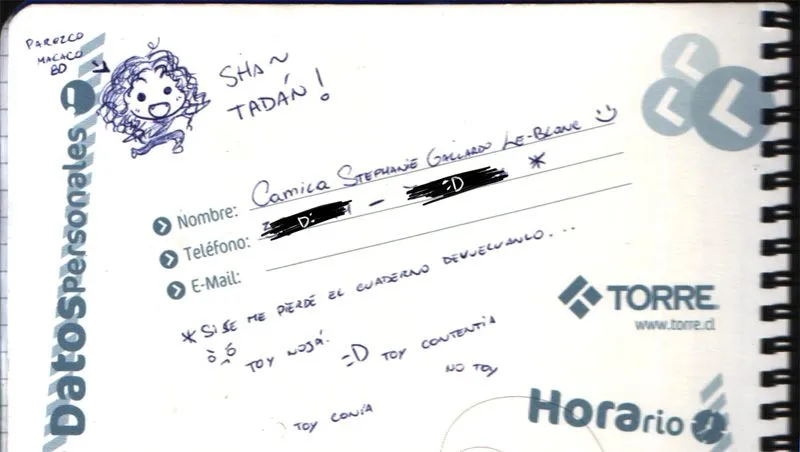 PAREZCO
MACACO
BD
SHAN
TADÁN!
Datospersonales
Nombre: Camila Stephanie Gallardo Le-Blanc :)
Teléfono: D: - :D *
E-Mail:
TORRE
www.torre.cl
* SI SE ME PIERDE EL CUADERNO DEVUELVANLO...
TOY NOJÁ.
:D TOY CONTENTIA
NO TOY
TOY CONÍA
Horario